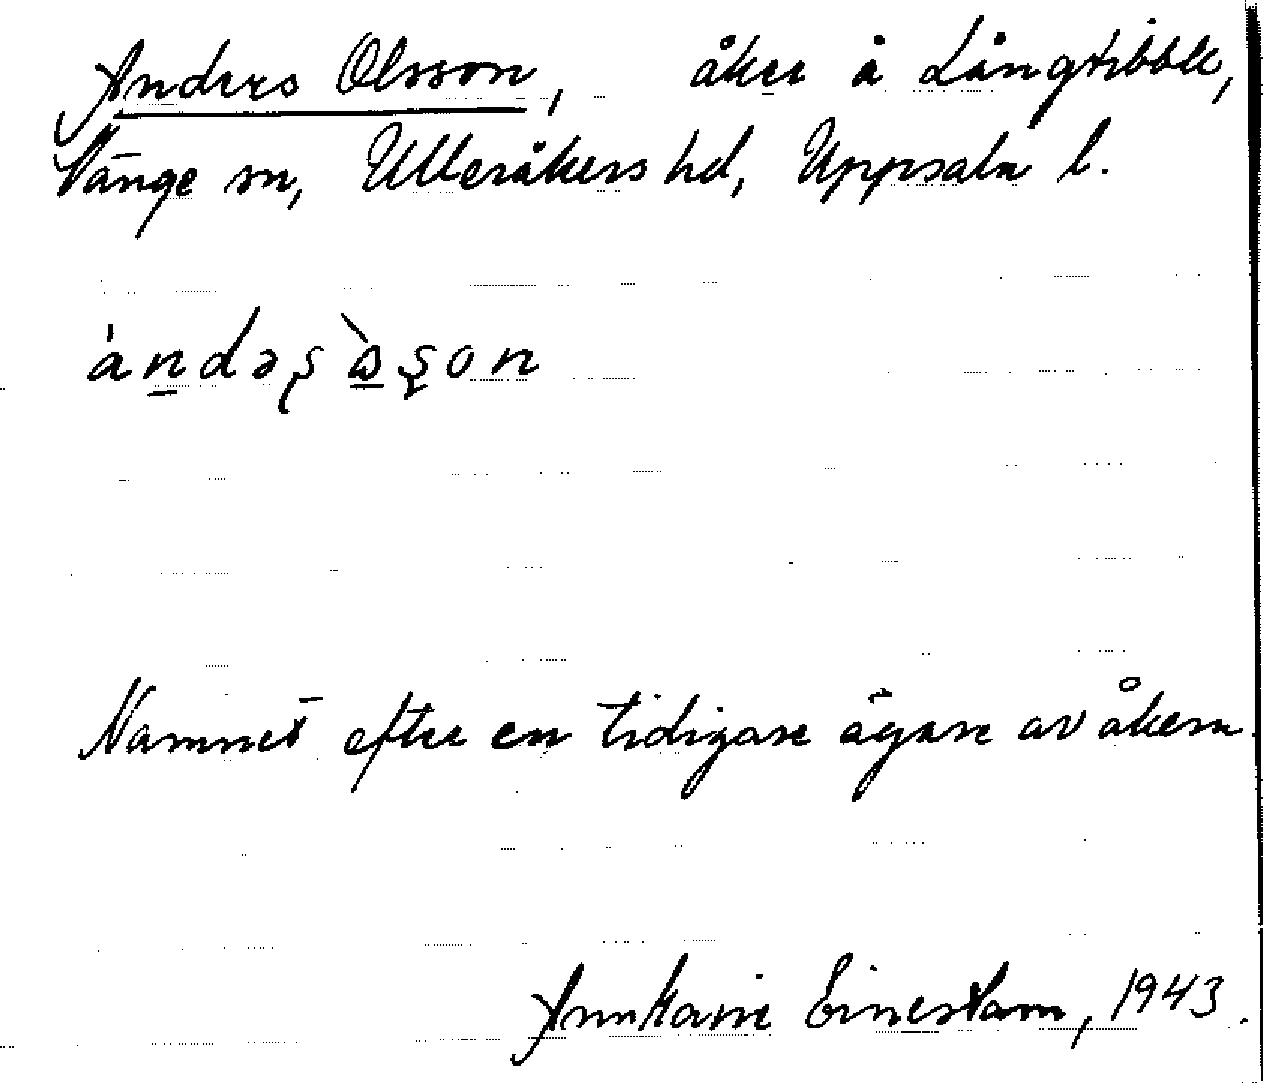 Anders Olsson, åker å Långtibble,
Vänge sn, Ulleråkers hd, Uppsala l.
andəş òşon
Namnet efter en tidigare ägare av åkern.
1943.